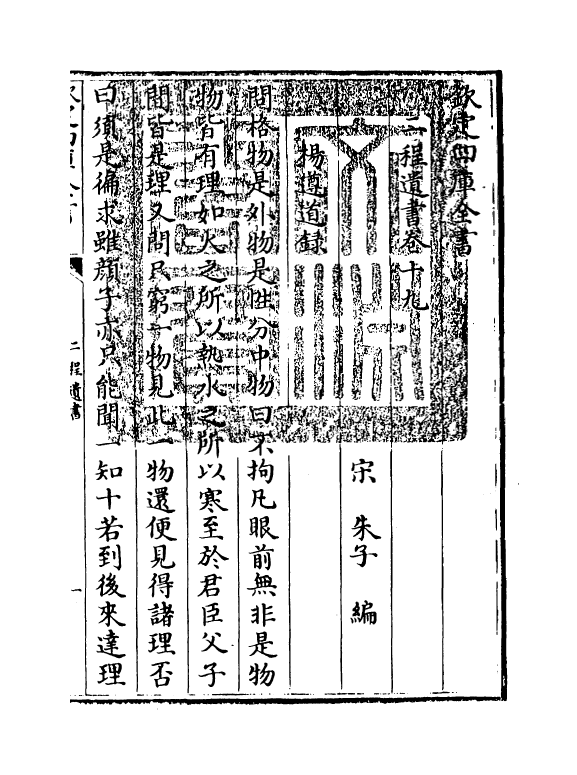 欽定四庫全書
二程遺書卷十九
宋 朱子 編
楊遵道録
問格物是外物是性分中物曰不拘凡眼前無非是物
物皆有理如火之所以熱水之所以寒至於君臣父子
間皆是理又問只窮一物見此一物還便見得諸理否
曰須是徧求雖顔子亦只能聞一知十若到後來達理
二程遺書
一